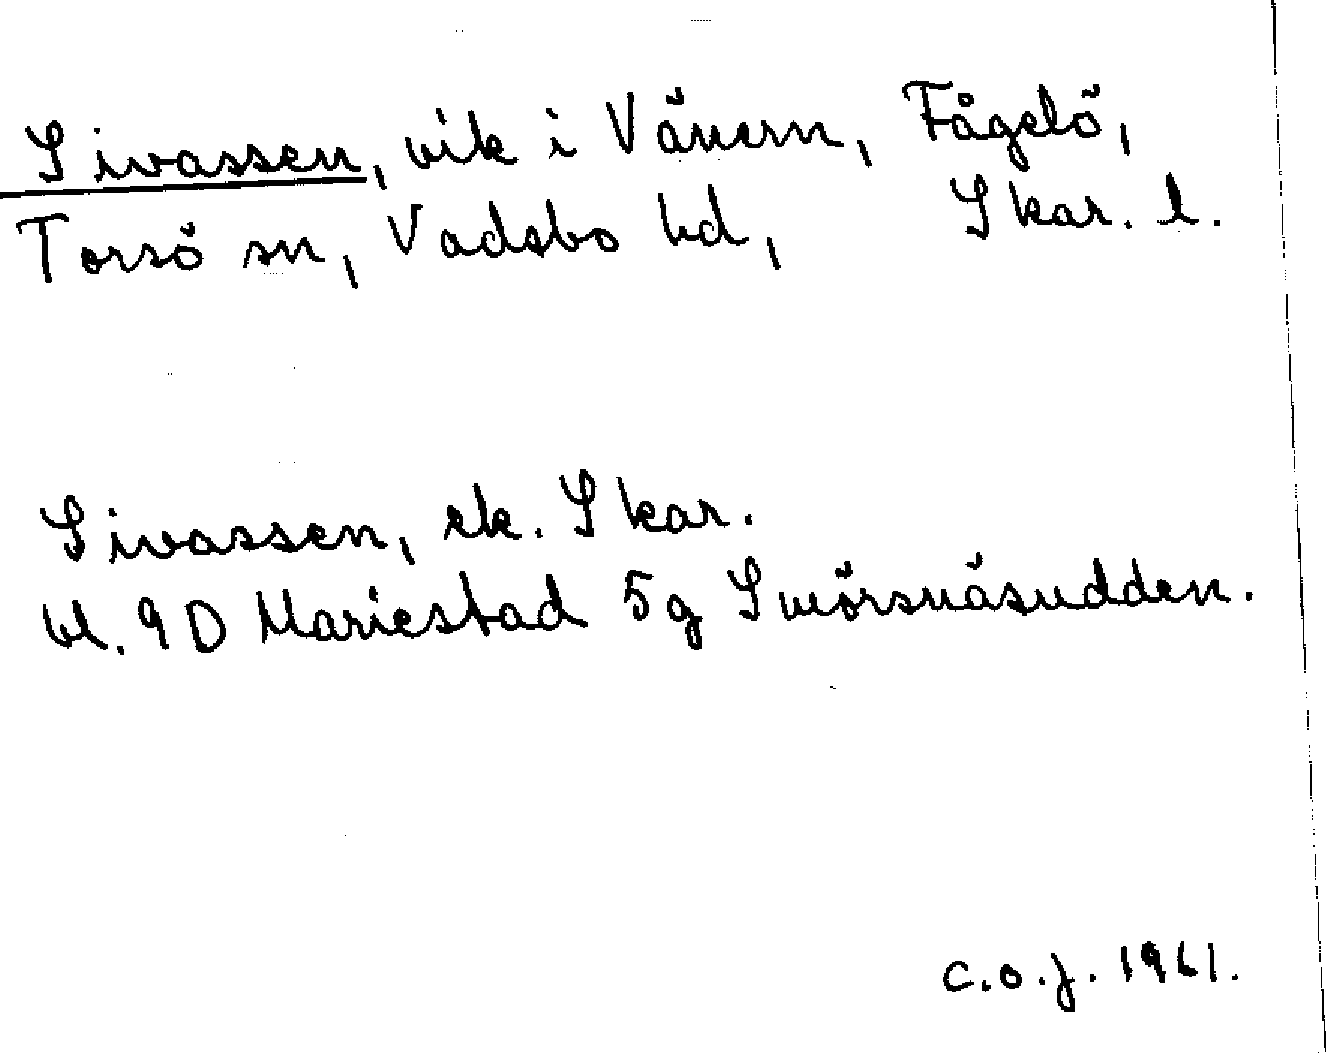 Sivassen, vik i Vänern, Fågelö,
Torsö sn, Vadsbo hd, Skar. l.
Sivassen, ek. Skar.
bl. 9D Mariestad 5g Smörsnäsudden.
C.O.J. 1961.